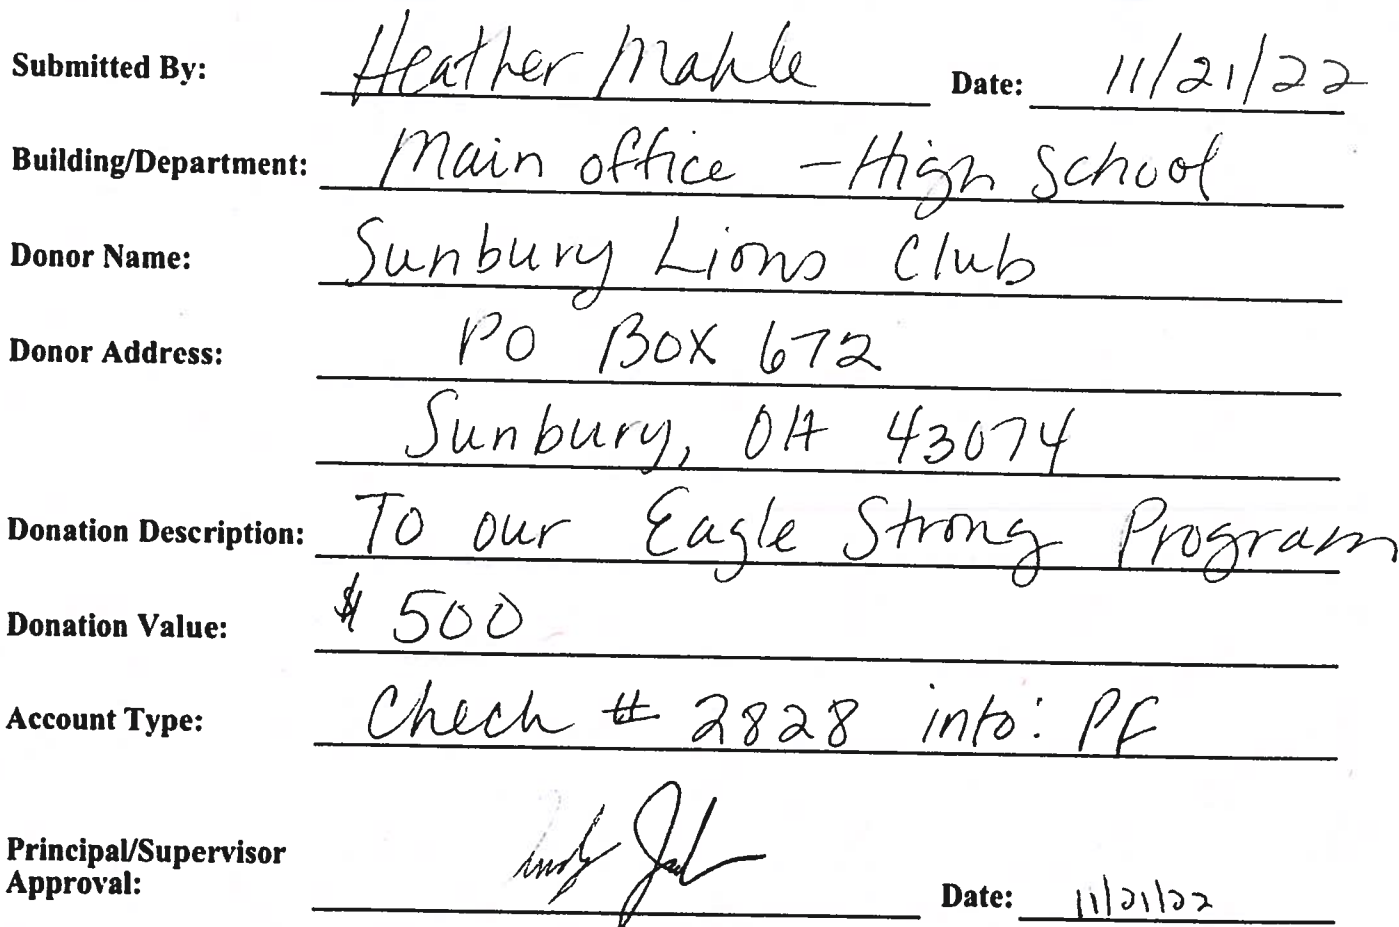 Submitted By: Heather Mahle Date: 11/21/22
Building/Department: Main office - High School
Donor Name: Sunbury Lions Club
Donor Address: PO BOX 672
Sunbury, OH 43074
Donation Description: To our Eagle Strong Program
Donation Value: $ 500
Account Type: Check # 2828 into: PF
Principal/Supervisor
Approval: Date: 11/21/22